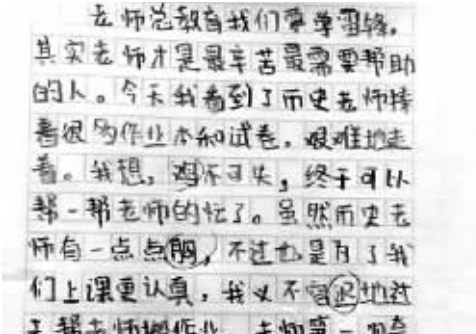 老师总教育我们要学雷锋。
其实老师才是最辛苦最需要帮助
的人。今天我看到了历史老师捧
着很多作业本和试卷，艰难地走
着。我想，不可失，终于可以
帮一帮老师的忙了。虽然历史老
师有一点点胸，不过也是为了我
们上课更认真，我义不容迟地过
老师